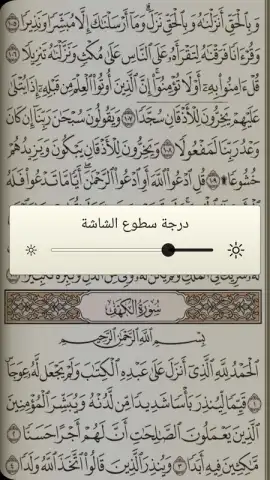 وَبِالْحَقِّ أَنزَلْنَٰهُ وَبِالْحَقِّ نَزَلَ ۗ وَمَآ أَرْسَلْنَٰكَ إِلَّا مُبَشِّرًا وَنَذِيرًا ١٠٥
وَقُرْءَانًا فَرَقْنَٰهُ لِتَقْرَأَهُۥ عَلَى النَّاسِ عَلَىٰ مُكْثٍ وَنَزَّلْنَٰهُ تَنزِيلًا ١٠٦
قُلْ ءَامِنُوا۟ بِهِۦٓ أَوْ لَا تُؤْمِنُوٓا۟ ۚ إِنَّ الَّذِينَ أُوتُوا۟ الْعِلْمَ مِن قَبْلِهِۦٓ إِذَا يُتْلَىٰ
عَلَيْهِمْ يَخِرُّونَ لِلْأَذْقَانِ سُجَّدًا ١٠٧ وَيَقُولُونَ سُبْحَٰنَ رَبِّنَآ إِن كَانَ
وَعْدُ رَبِّنَا لَمَفْعُولًا ١٠٨ وَيَخِرُّونَ لِلْأَذْقَانِ يَبْكُونَ وَيَزِيدُهُمْ
خُشُوعًا ۩ ١٠٩ قُلِ ادْعُوا۟ اللَّهَ أَوِ ادْعُوا۟ الرَّحْمَٰنَ ۖ أَيًّا مَّا تَدْعُوا۟ فَلَهُ
درجة سطوع الشاشة
سُورَةُ الْكَهْفِ
بِسْمِ اللَّهِ الرَّحْمَٰنِ الرَّحِيمِ
الْحَمْدُ لِلَّهِ الَّذِىٓ أَنزَلَ عَلَىٰ عَبْدِهِ الْكِتَٰبَ وَلَمْ يَجْعَل لَّهُۥ عِوَجَا
١ قَيِّمًا لِّيُنذِرَ بَأْسًا شَدِيدًا مِّن لَّدُنْهُ وَيُبَشِّرَ الْمُؤْمِنِينَ
الَّذِينَ يَعْمَلُونَ الصَّٰلِحَٰتِ أَنَّ لَهُمْ أَجْرًا حَسَنًا ٢
مَّٰكِثِينَ فِيهِ أَبَدًا ٣ وَيُنذِرَ الَّذِينَ قَالُوا۟ اتَّخَذَ اللَّهُ وَلَدًا ٤